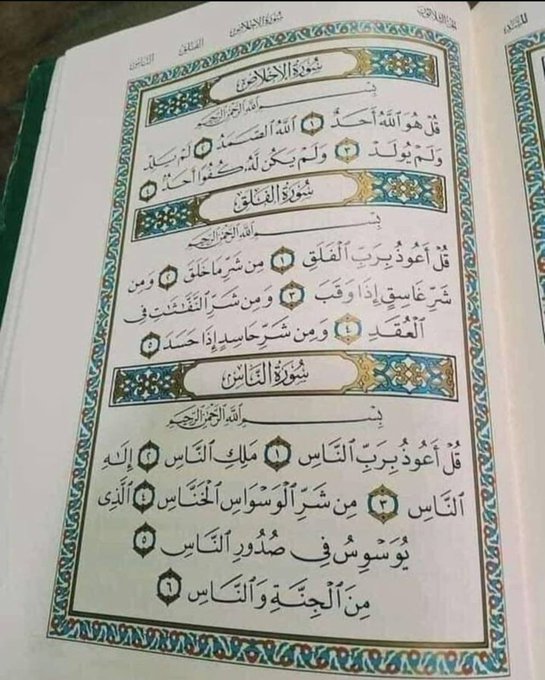 سُورَةُ الإِخْلَاصِ الفَلَقِ النَّاسِ
سُورَةُ الإِخْلَاصِ
بِسْمِ ٱللَّهِ ٱلرَّحْمَٰنِ ٱلرَّحِيمِ
قُلْ هُوَ ٱللَّهُ أَحَدٌ ١ ٱللَّهُ ٱلصَّمَدُ ٢ لَمْ يَلِدْ
وَلَمْ يُولَدْ ٣ وَلَمْ يَكُن لَّهُۥ كُفُوًا أَحَدٌۢ ٤
سُورَةُ الفَلَقِ
بِسْمِ ٱللَّهِ ٱلرَّحْمَٰنِ ٱلرَّحِيمِ
قُلْ أَعُوذُ بِرَبِّ ٱلْفَلَقِ ١ مِن شَرِّ مَا خَلَقَ ٢ وَمِن
شَرِّ غَاسِقٍ إِذَا وَقَبَ ٣ وَمِن شَرِّ ٱلنَّفَّٰثَٰتِ فِى
ٱلْعُقَدِ ٤ وَمِن شَرِّ حَاسِدٍ إِذَا حَسَدَ ٥
سُورَةُ النَّاسِ
بِسْمِ ٱللَّهِ ٱلرَّحْمَٰنِ ٱلرَّحِيمِ
قُلْ أَعُوذُ بِرَبِّ ٱلنَّاسِ ١ مَلِكِ ٱلنَّاسِ ٢ إِلَٰهِ
ٱلنَّاسِ ٣ مِن شَرِّ ٱلْوَسْوَاسِ ٱلْخَنَّاسِ ٤ ٱلَّذِى
يُوَسْوِسُ فِى صُدُورِ ٱلنَّاسِ ٥
مِنَ ٱلْجِنَّةِ وَٱلنَّاسِ ٦